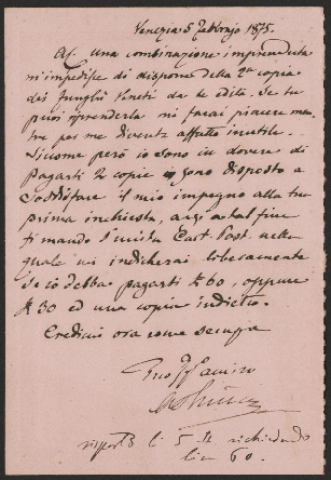 Venezia 5 Febbrajo 1875.
Una combinazione impreveduta
m'impedisce di disporre della 2a copia
dei Funghi Veneti da te edita. Se tu
puoi riprenderla mi farai piacere men-
tre per me diventa affatto inutile.
Siccome però io sono in dovere di
pagarti 2 copie sono disposto a
soddisfare il mio impegno alla tua
prima inchiesta, anzi a tal fine
ti mando l'unita Cart. Post. nella
quale mi indicherai liberamente
se io debba pagarti 60, oppure
30 ed una copia indietro.
Credimi ora come sempre
Tuo amico
risposto li 5 richiedendo
lire 60.